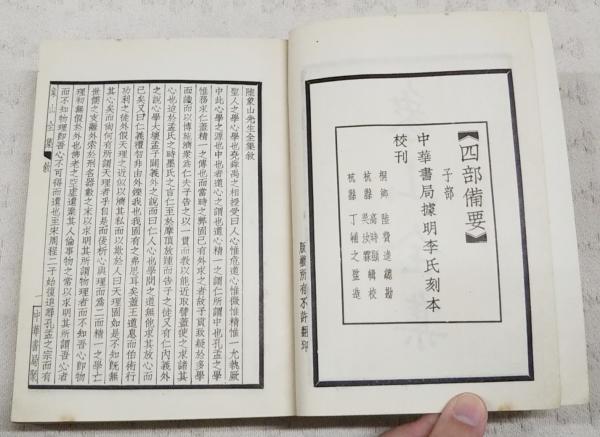 【四部備要】
子部
中華書局據明李氏刻本
校刊
桐鄉 陸費逵 總勘
杭縣 高時顯 輯校
杭縣 吳汝霖
杭縣 丁輔之 監造
版權所有不許翻印
陸象山先生全集敘
聖人之學心學也堯舜禹之相授受曰人心惟危道心惟微惟精惟一允執厥
中此心學之源也中也者道心之謂也道心精一之謂仁所謂中也孔孟之學
惟務求仁蓋精一之傳也而當時之弊固已有外求之者故子貢致疑於多學
而識而以博施濟衆爲仁夫子告之以一貫而教以能近取譬蓋使之求諸其
心也迨於孟氏之時墨氏之言仁至於摩頂放踵而告子之徒又有仁內義外
之說心學大壞孟子闢義外之說而曰仁人心也學問之道無他求其放心而
已矣又曰仁義禮智非由外鑠我也我固有之弗思耳矣蓋王道息而伯術行
功利之徒外假天理之近似以濟其私而以欺於人曰天理固如是不知既無
其心矣而尚何有所謂天理者乎自是而後析心與理而爲二而精一之學亡
世儒之支離外索於刑名器數之末以求明其所謂物理者而不知吾心即物
理初無假於外也佛老之空虛遺棄其人倫事物之常以求明其所謂吾心者
而不知物理即吾心不可得而遺也至宋周程二子始復追尋孔孟之宗而有
象山全集 敘
一 中華書局聚